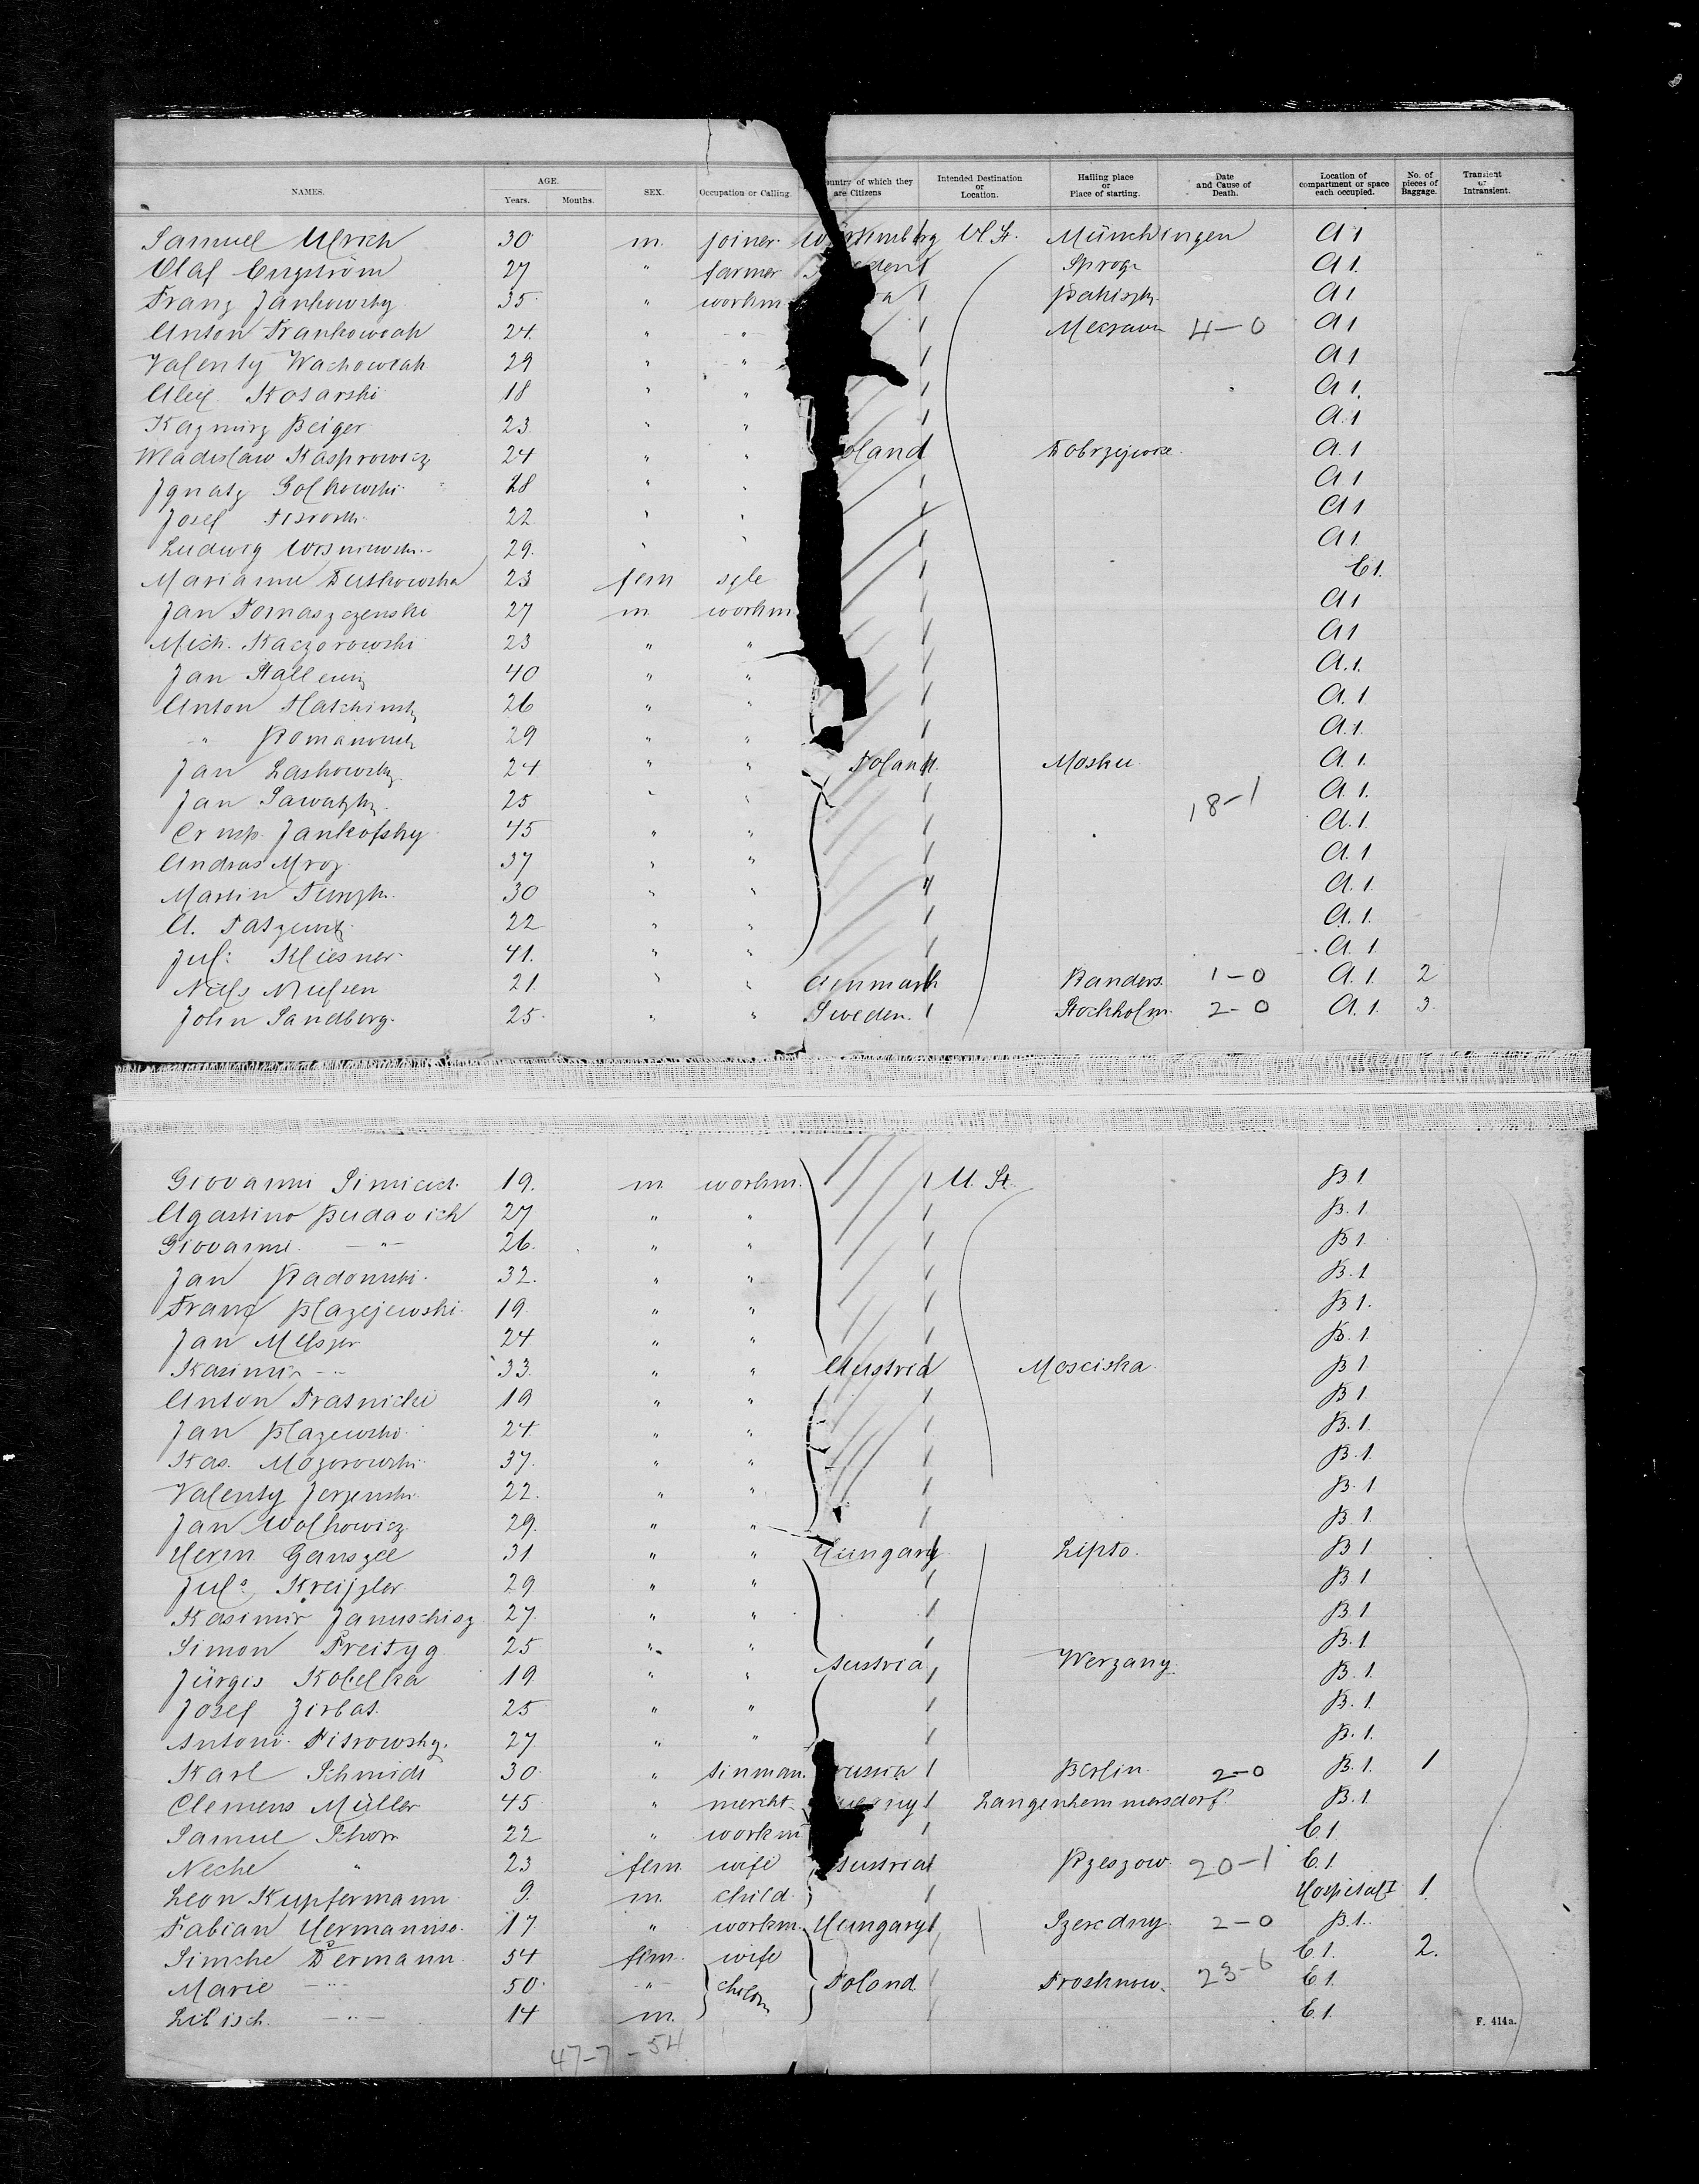 NAMES. AGE. Years. Months. SEX. Occupation or Calling. untry of which they are Citizens Intended Destination or Location. Hailing place or Place of starting. Date and Cause of Death. Location of compartment or space each occupied. No. of pieces of Baggage. Transient or Intransient.
Samuel Ulrich 30 m. joiner. U St. Münchingen A 1
Olaf Engström 27 " farmer Sproge A 1.
Franz Jankowsky 35. " workm. A 1
Anton Frankowiak 24. " " 4-0 A 1
Valenty Wachowiak 29 " " A 1
Alex Kosarski 18 " " A 1.
Kazmirz Beiger 23 " " A. 1
Wladislaw Kasprowicz 24 " " oland A. 1
Ignatz Golkowski 28 " " A 1
Josef 22 " " A 1
Ludwig Wisniewski 29. " " A 1
Marianne Dutkowska 23 fem sgle E 1.
Jan Tomaszczewski 27 m workm. A 1
Mich. Kaczorowski 23 " " A 1
Jan 40 " " A. 1.
Anton 26 " " A. 1
" 29 " " A. 1.
Jan Laskowsky 24 " " Poland. A. 1.
Jan Sawatzky 25 " " 18-1 A 1.
Jankofsky 45 " " A. 1.
Andras Mroz 37 " " A. 1
Martin 30 " " A. 1.
A. 22 " " A. 1.
Jul: Kliesner 41. " " A. 1
Niels Nielsen 21. " " Denmark Randers. 1-0 A. 1. 2
John Sandberg. 25. " " Sweden. Stockholm. 2-0 A. 1. 3.
Giovanni Simicich 19. m workm. U. St. B 1
Agostino Budavich 27 " " B. 1
Giovanni — " — 26. " " B 1
Jan Radomski. 32. " " B. 1
Franz Blazejewski 19 " " B 1.
Jan Melszer 24 " " B. 1
Kasimir — " — 33. " " Austria Mosciska. B 1
Anton Prasnicki 19 " " B 1
Jan Blazewski 24. " " B. 1
Kas. Mozorowski 37. " " B. 1
Valenty 22. " " B. 1
Jan Wolkowicz 29. " " B 1
Herm. Ganszel 31 " " Hungary. Lipto. B 1
Juls Kreizler 29 " " B 1
Kasimir Januschisz 27. " " B 1
Simon Freityg 25 " " B. 1
Jürgis Kobelka 19 " " Austria Werzany B. 1.
Josef Zirbas. 25 " " B. 1.
Antoni Pisrowsky. 27 " " B. 1.
Karl Schmidt 30 " tinman. russia Berlin. 2-0 B. 1. 1
Clemens Müller 45 " mercht. Langenhemmersdorf. B. 1
Samuel Schorr 22 " workm E. 1
Neche " 23 fem wife Austria Rzeszow 20-1 E. 1.
Leon Kupfermann 9. m. child Hospital I 1.
Fabian Hermannso. 17. " workm. Hungary Szeredny. 2-0 B. 1.
Simche Dermann 54 fem. wife E. 1. 2.
Marie — " — 50. " childn Poland. Prosknow. 23-6 E 1.
Libisch. — " — 14 m. E. 1.
47-7-54
F. 414a.